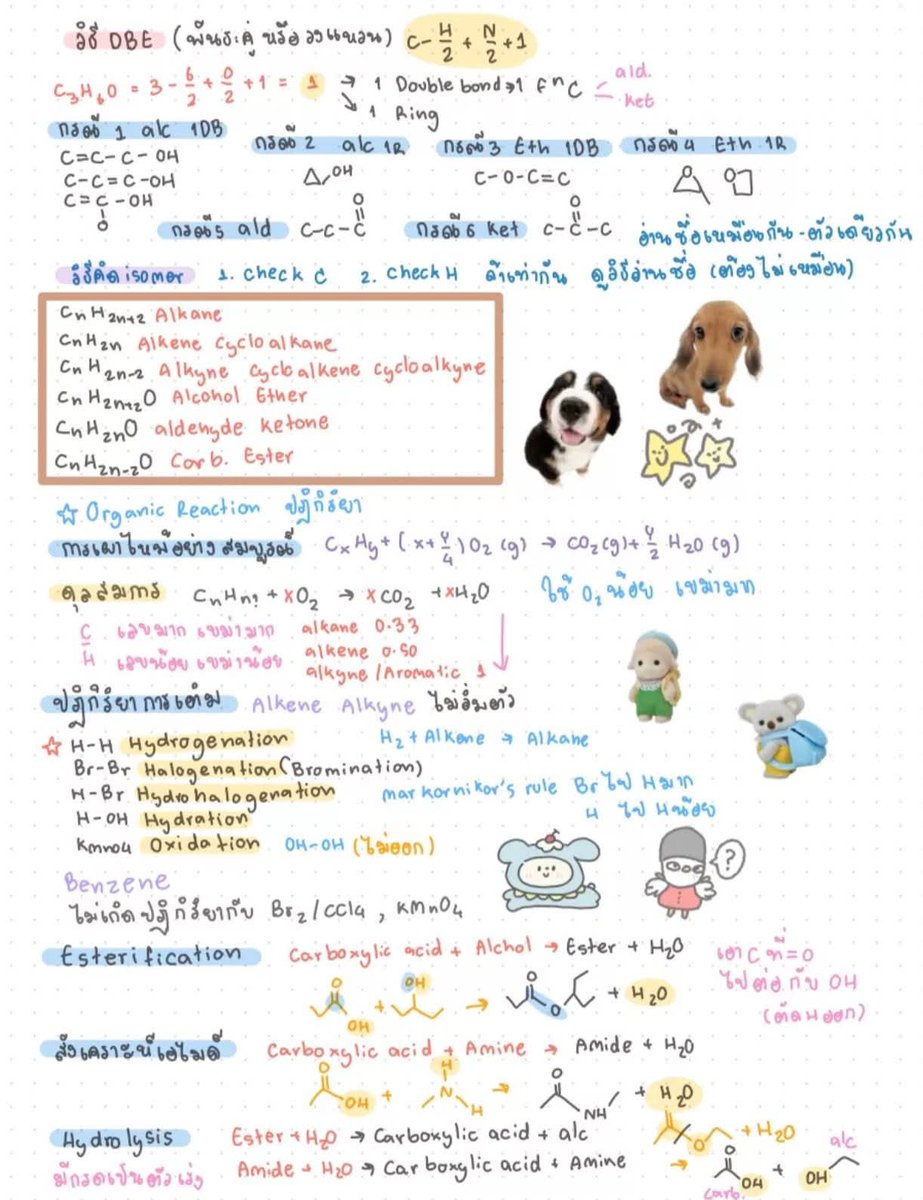 วิธี DBE (พันธะคู่ หรือ วงแหวน) C-H/2 + N/2 + 1
C3H6O = 3 - 6/2 + 0/2 + 1 = 1 → 1 Double bond → 1 FnC ald.
ket
↘ 1 Ring
กรณี 1 alc 1DB
C=C-C-OH
C-C=C-OH
C=C-OH
กรณี 2 alc 1R
OH
กรณี 3 Eth 1DB
C-O-C=C
กรณี 4 Eth 1R
O O
กรณี 5 ald C-C-C
O
กรณี 6 ket C-C-C
O
อ่านชื่อเหมือนกัน - ตัวเดียวกัน
วิธีคิด isomer 1. check C 2. check H ถ้าเท่ากัน ดูวิธีอ่านชื่อ (ต้องไม่เหมือน)
CnH2n+2 Alkane
CnH2n Alkene Cycloalkane
CnH2n-2 Alkyne Cycloalkene Cycloalkyne
CnH2n+2O Alcohol Ether
CnH2nO aldehyde ketone
CnH2n-2O Carb. Ester
☆ Organic Reaction ปฏิกิริยา
การเผาไหม้อย่างสมบูรณ์ CxHy + (x+y/4)O2 (g) → CO2 (g) + y/2 H2O (g)
ดุลสมการ CnHn? + xO2 → xCO2 + xH2O ใช้ O2 น้อย เขม่ามาก
C/H เลขมาก เขม่ามาก alkane 0.33
เลขน้อย เขม่าน้อย alkene 0.50
alkyne/Aromatic 1
ปฏิกิริยาการเติม Alkene Alkyne ไม่อิ่มตัว
☆ H-H Hydrogenation H2 + Alkene → Alkane
Br-Br Halogenation (Bromination)
H-Br Hydrohalogenation markornikor's rule Br ไป H มาก
H ไป H น้อย
H-OH Hydration
KmnO4 Oxidation OH-OH (ไม่ออก)
?
Benzene
ไม่เกิดปฏิกิริยากับ Br2/CCl4, KMnO4
Esterification Carboxylic acid + Alchol → Ester + H2O
เอา C ที่=O
ไปต่อกับ OH
(ตัด H ออก)
O OH + OH → O O + H2O
สังเคราะห์เอไมด์ Carboxylic acid + Amine → Amide + H2O
O OH + H N H → O NH + H2O
Hydrolysis Ester + H2O → Carboxylic acid + alc
มีกรดเป็นตัวเร่ง Amide + H2O → Carboxylic acid + Amine
O + H2O
→ O OH carb. + OH alc